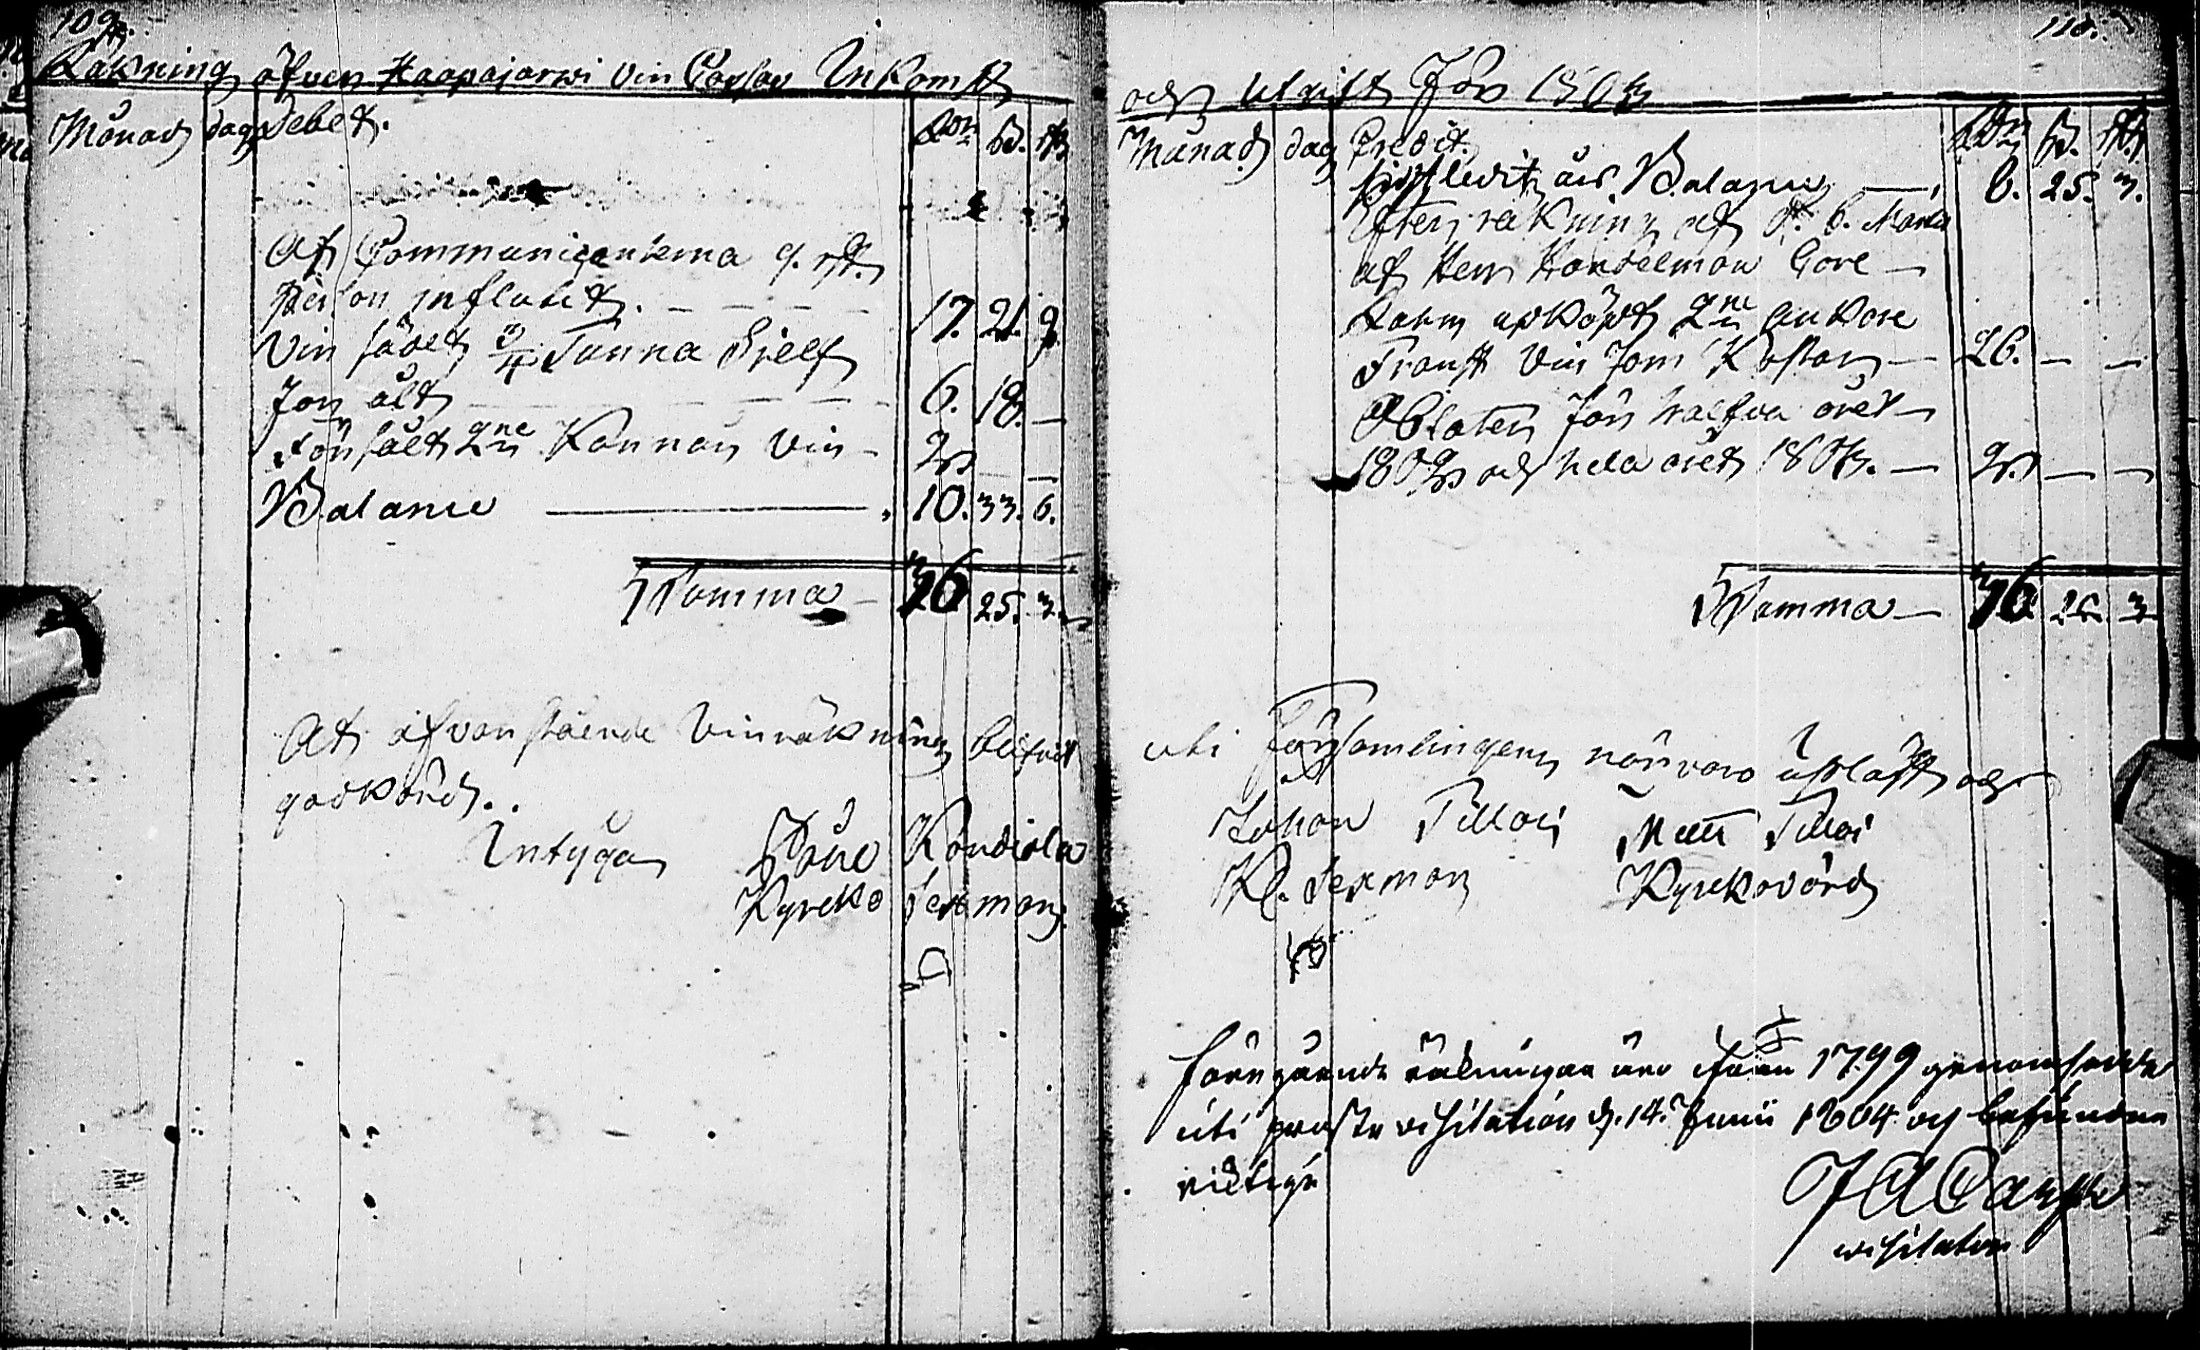 109.
Räkning öfver Haapajarwi Vin Cassas Inkomst
Månad dag Debet. Rdr ß. rst
Af Communicanterna 9. rst.
Person influtit. — — — 17. 21. 9
Vin sädet 3/4 Tunna Sielf
för ält — — — 6. 18. —
Försålt 2ne Kannor Vin — 2 — —
Balance — 10. 33. 6.
Summa — 36 25. 3.
At ofvanstående Vinräkning blifvit
godkänd.
Intyga
Kyrko Sexman
110.
och Utgift för 1803
Månad dag Credit. Rdr ß. rst
Sistledit års Balance — 8. 25. 3.
Efter räkning af
af Herr Handelman
upköpt 2ne ankare
Franst Vin som Kostar — 26. — —
Oblater för halfva året
1802 och hela året 1803. — 2 — —
Summa — 36 25 3
uti Församlingens närvaro upläst och
Johan Tilloi Matts Tilloi
K. Sexman Kyrkovärd
Föregående räkningar äro ifrån 1799 genomsedda
uti proste visitation d. 14. Junii 1804 och befundne
riktige
visitator